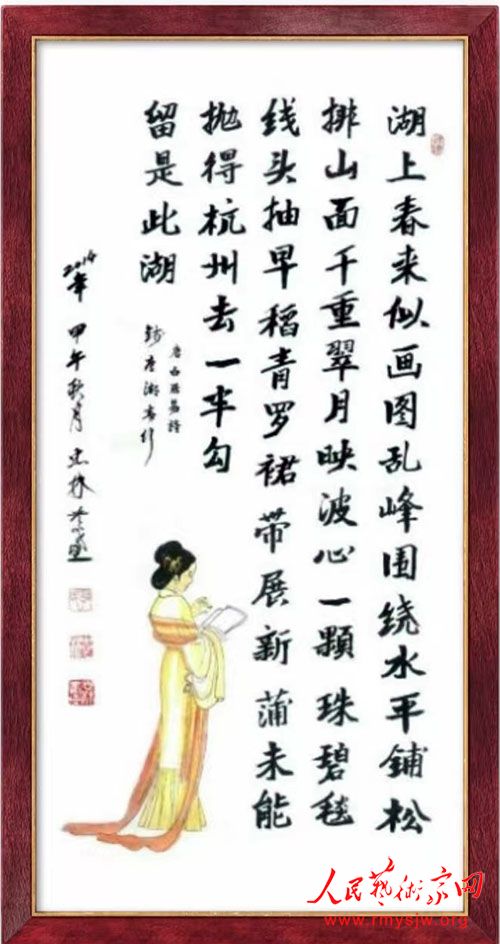 湖上春来似画图乱峰围绕水平铺松
排山面千重翠月映波心一颗珠碧毯
线头抽早稻青罗裙带展新蒲未能
抛得杭州去一半勾
留是此湖
唐白居易诗
钱唐湖春行
2014年 甲午秋月
人民藝術家网
www.rmysjw.org